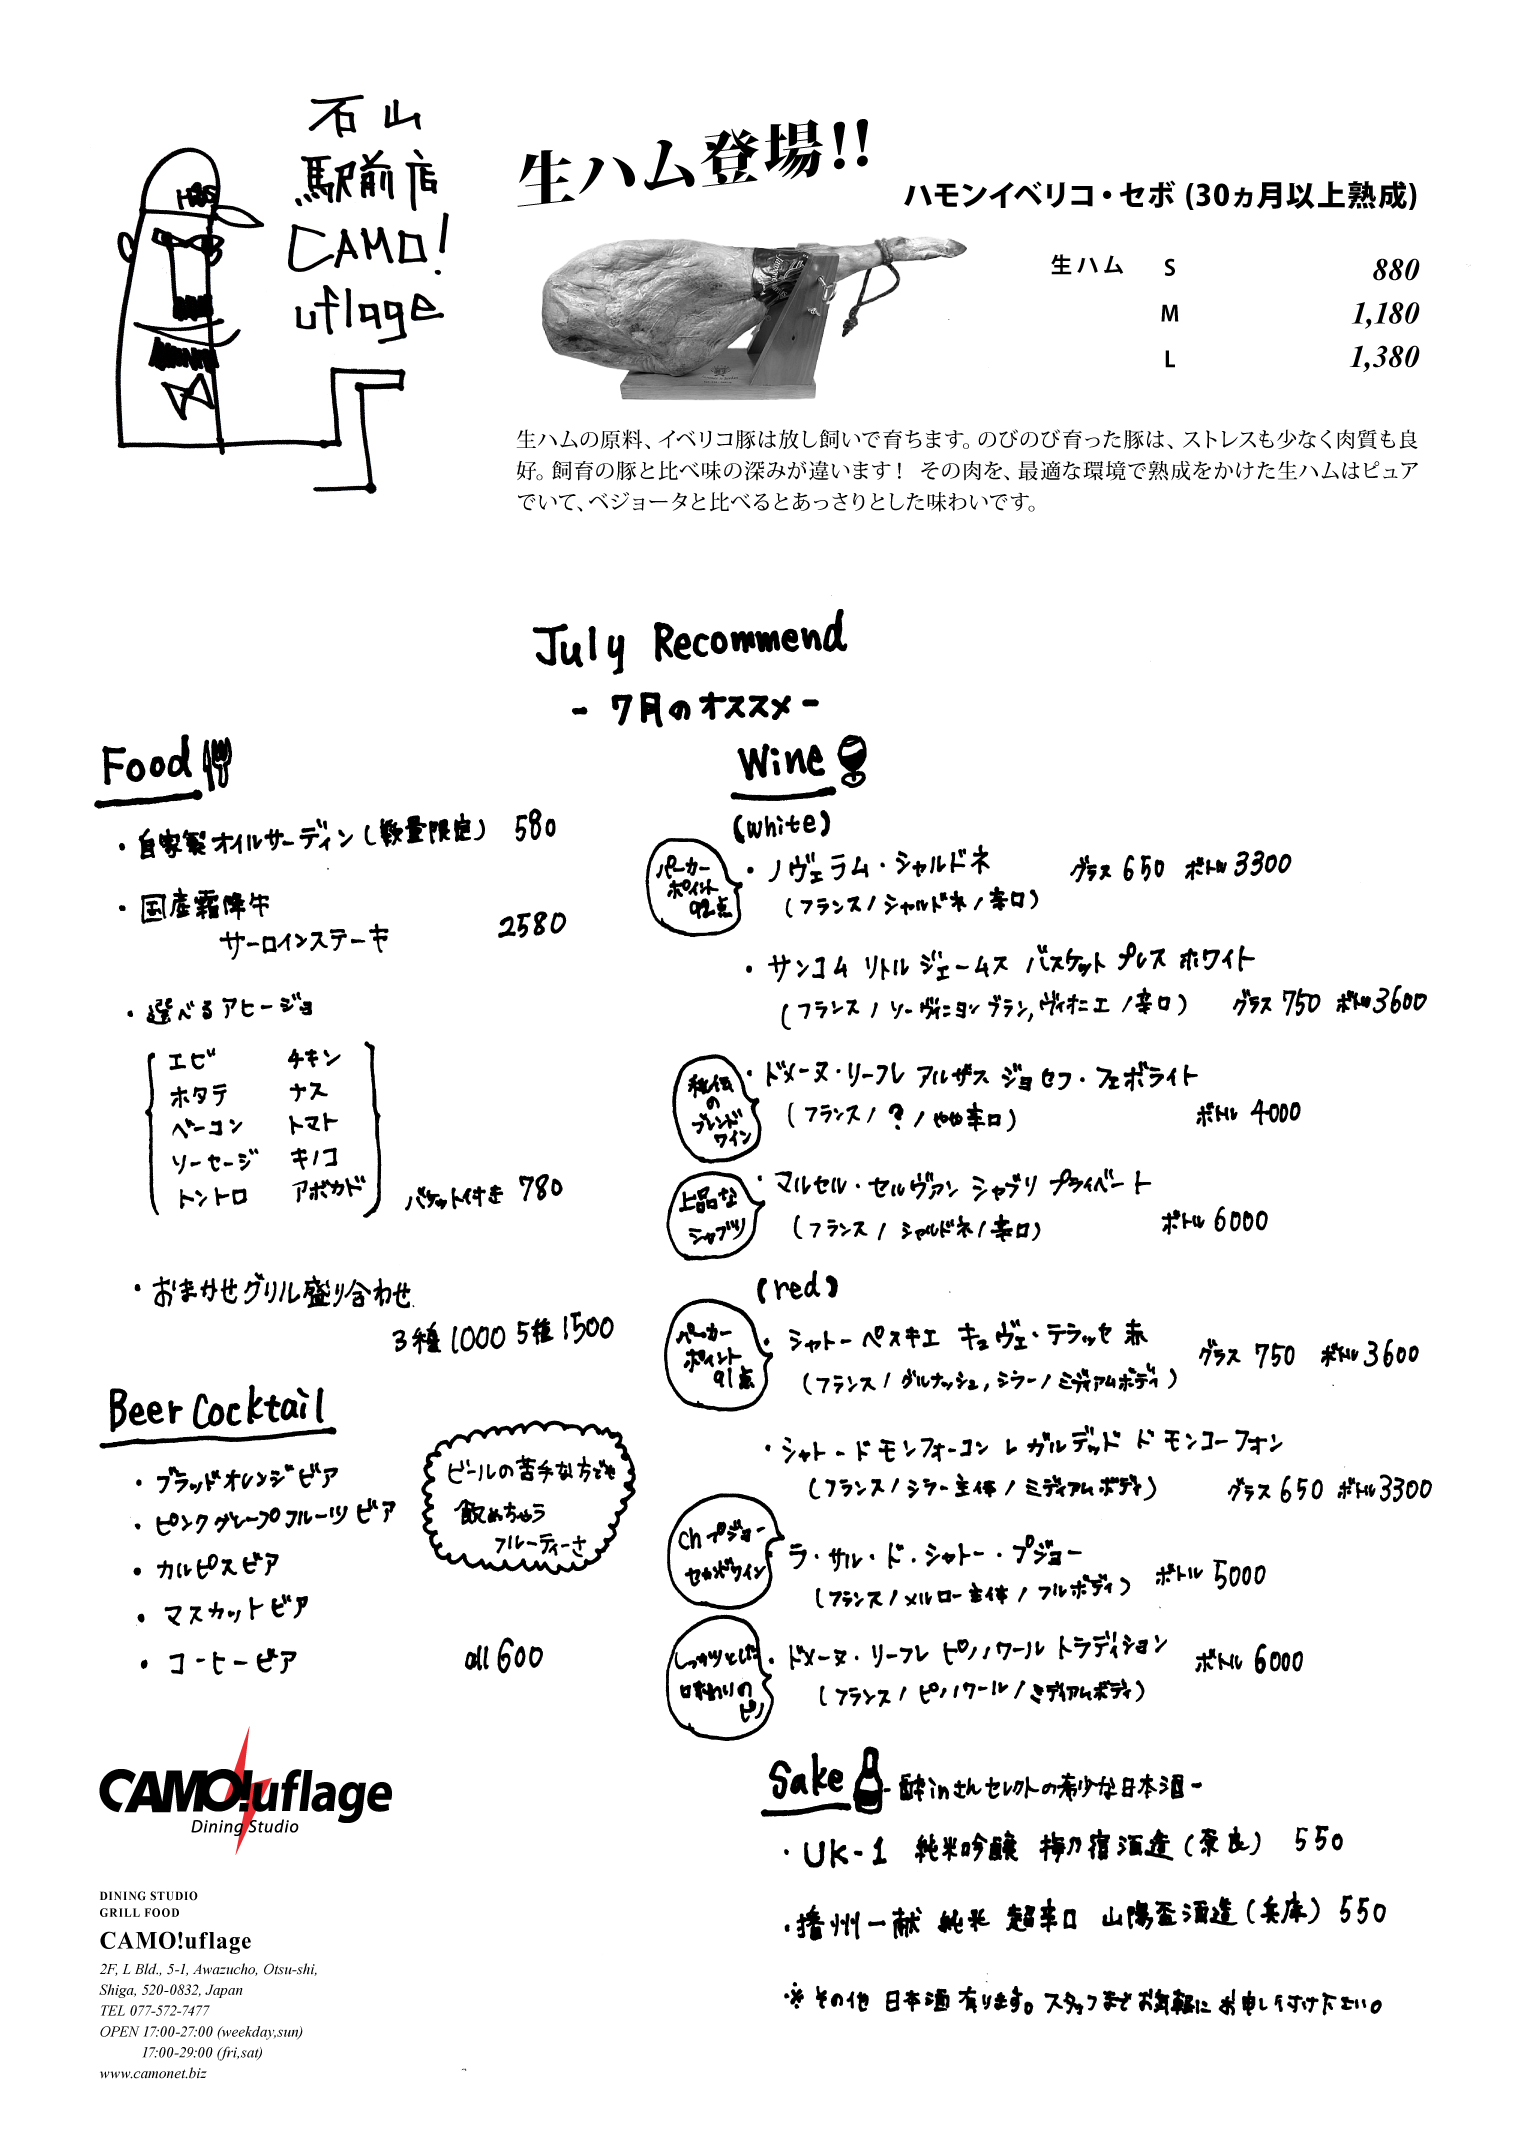 石山
駅前店
CAMO!
uflage
HGS
生ハム登場!!
ハモンイベリコ・セボ (30ヵ月以上熟成)
生ハム S 880
M 1,180
L 1,380
生ハムの原料、イベリコ豚は放し飼いで育ちます。のびのび育った豚は、ストレスも少なく肉質も良
好。飼育の豚と比べ味の深みが違います! その肉を、最適な環境で熟成をかけた生ハムはピュア
でいて、ベジョータと比べるとあっさりとした味わいです。
July Recommend
- 7月のオススメ -
Food
・自家製オイルサーディン(数量限定) 580
・国産霜降牛
サーロインステーキ 2580
・選べるアヒージョ
エビ チキン
ホタテ ナス
ベーコン トマト
ソーセージ キノコ
トントロ アボカド
バケット付き 780
・おまかせグリル盛り合わせ
3種 1000 5種 1500
Beer Cocktail
・ブラッドオレンジビア
・ピンクグレープフルーツビア
・カルピスビア
・マスカットビア
・コーヒービア all 600
ビールの苦手な方でも
飲めちゃう
フルーティーさ
Wine
(white)
パーカー
ポイント
92点
・ノヴェラム・シャルドネ グラス 650 ボトル 3300
(フランス/シャルドネ/辛口)
・サンコム リトル ジェームス バスケット プレス ホワイト
(フランス/ソーヴィニヨンブラン,ヴィオニエ/辛口) グラス 750 ボトル 3600
秘伝
の
ブレンド
ワイン
・ドメーヌ・リーフレ アルザス ジョセフ・フェボライト
(フランス/?/やや辛口) ボトル 4000
上品な
シャブリ
・マルセル・セルヴァン シャブリ プライベート
(フランス/シャルドネ/辛口) ボトル 6000
(red)
パーカー
ポイント
91点
・シャトーペスキエ キュヴェ・テラッセ 赤 グラス 750 ボトル 3600
(フランス/グルナッシュ,シラー/ミディアムボディ)
・シャトード モンフォーコン レ ガルデッド ド モンコーフォン
(フランス/シラー主体/ミディアムボディ) グラス 650 ボトル 3300
Chプジョー
セカンドワイン
ラ・サル・ド・シャトー・プジョー ボトル 5000
(フランス/メルロー主体/フルボディ)
しっかりとした
味わいの
ピノ
・ドメーヌ・リーフレ ピノノワール トラディション ボトル 6000
(フランス/ピノノワール/ミディアムボディ)
Sake -酔inさんセレクトの希少な日本酒-
・UK-1 純米吟醸 梅乃宿酒造(奈良) 550
・播州一献 純米 超辛口 山陽盃酒造(兵庫) 550
※その他 日本酒 有ります。スタッフまでお気軽にお申し付け下さい。
CAMO!uflage
Dining Studio
DINING STUDIO
GRILL FOOD
CAMO!uflage
2F, L Bld., 5-1, Awazucho, Otsu-shi,
Shiga, 520-0832, Japan
TEL 077-572-7477
OPEN 17:00-27:00 (weekday,sun)
17:00-29:00 (fri,sat)
www.camonet.biz